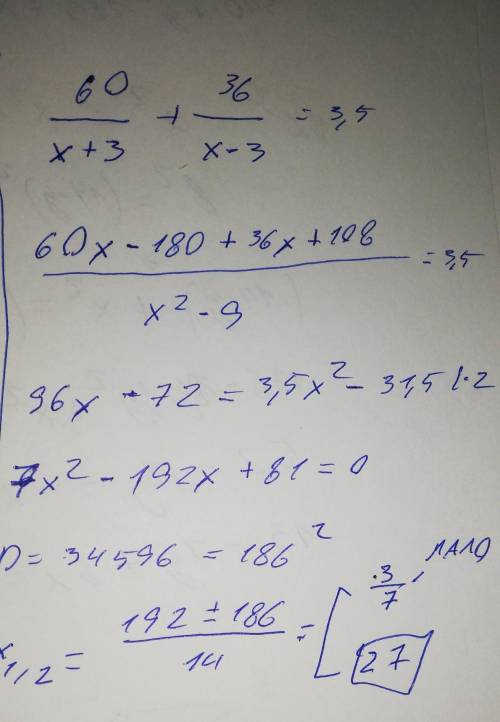 60/(x+3) + 36/(x-3) = 3,5
(60x - 180 + 36x + 108)/(x² - 9) = 3,5
96x - 72 = 3,5x² - 31,5 |·2
7x² - 192x + 81 = 0
D = 34596 = 186²
x₁,₂ = (192 ± 186)/14 = [ 3/7, мало
27